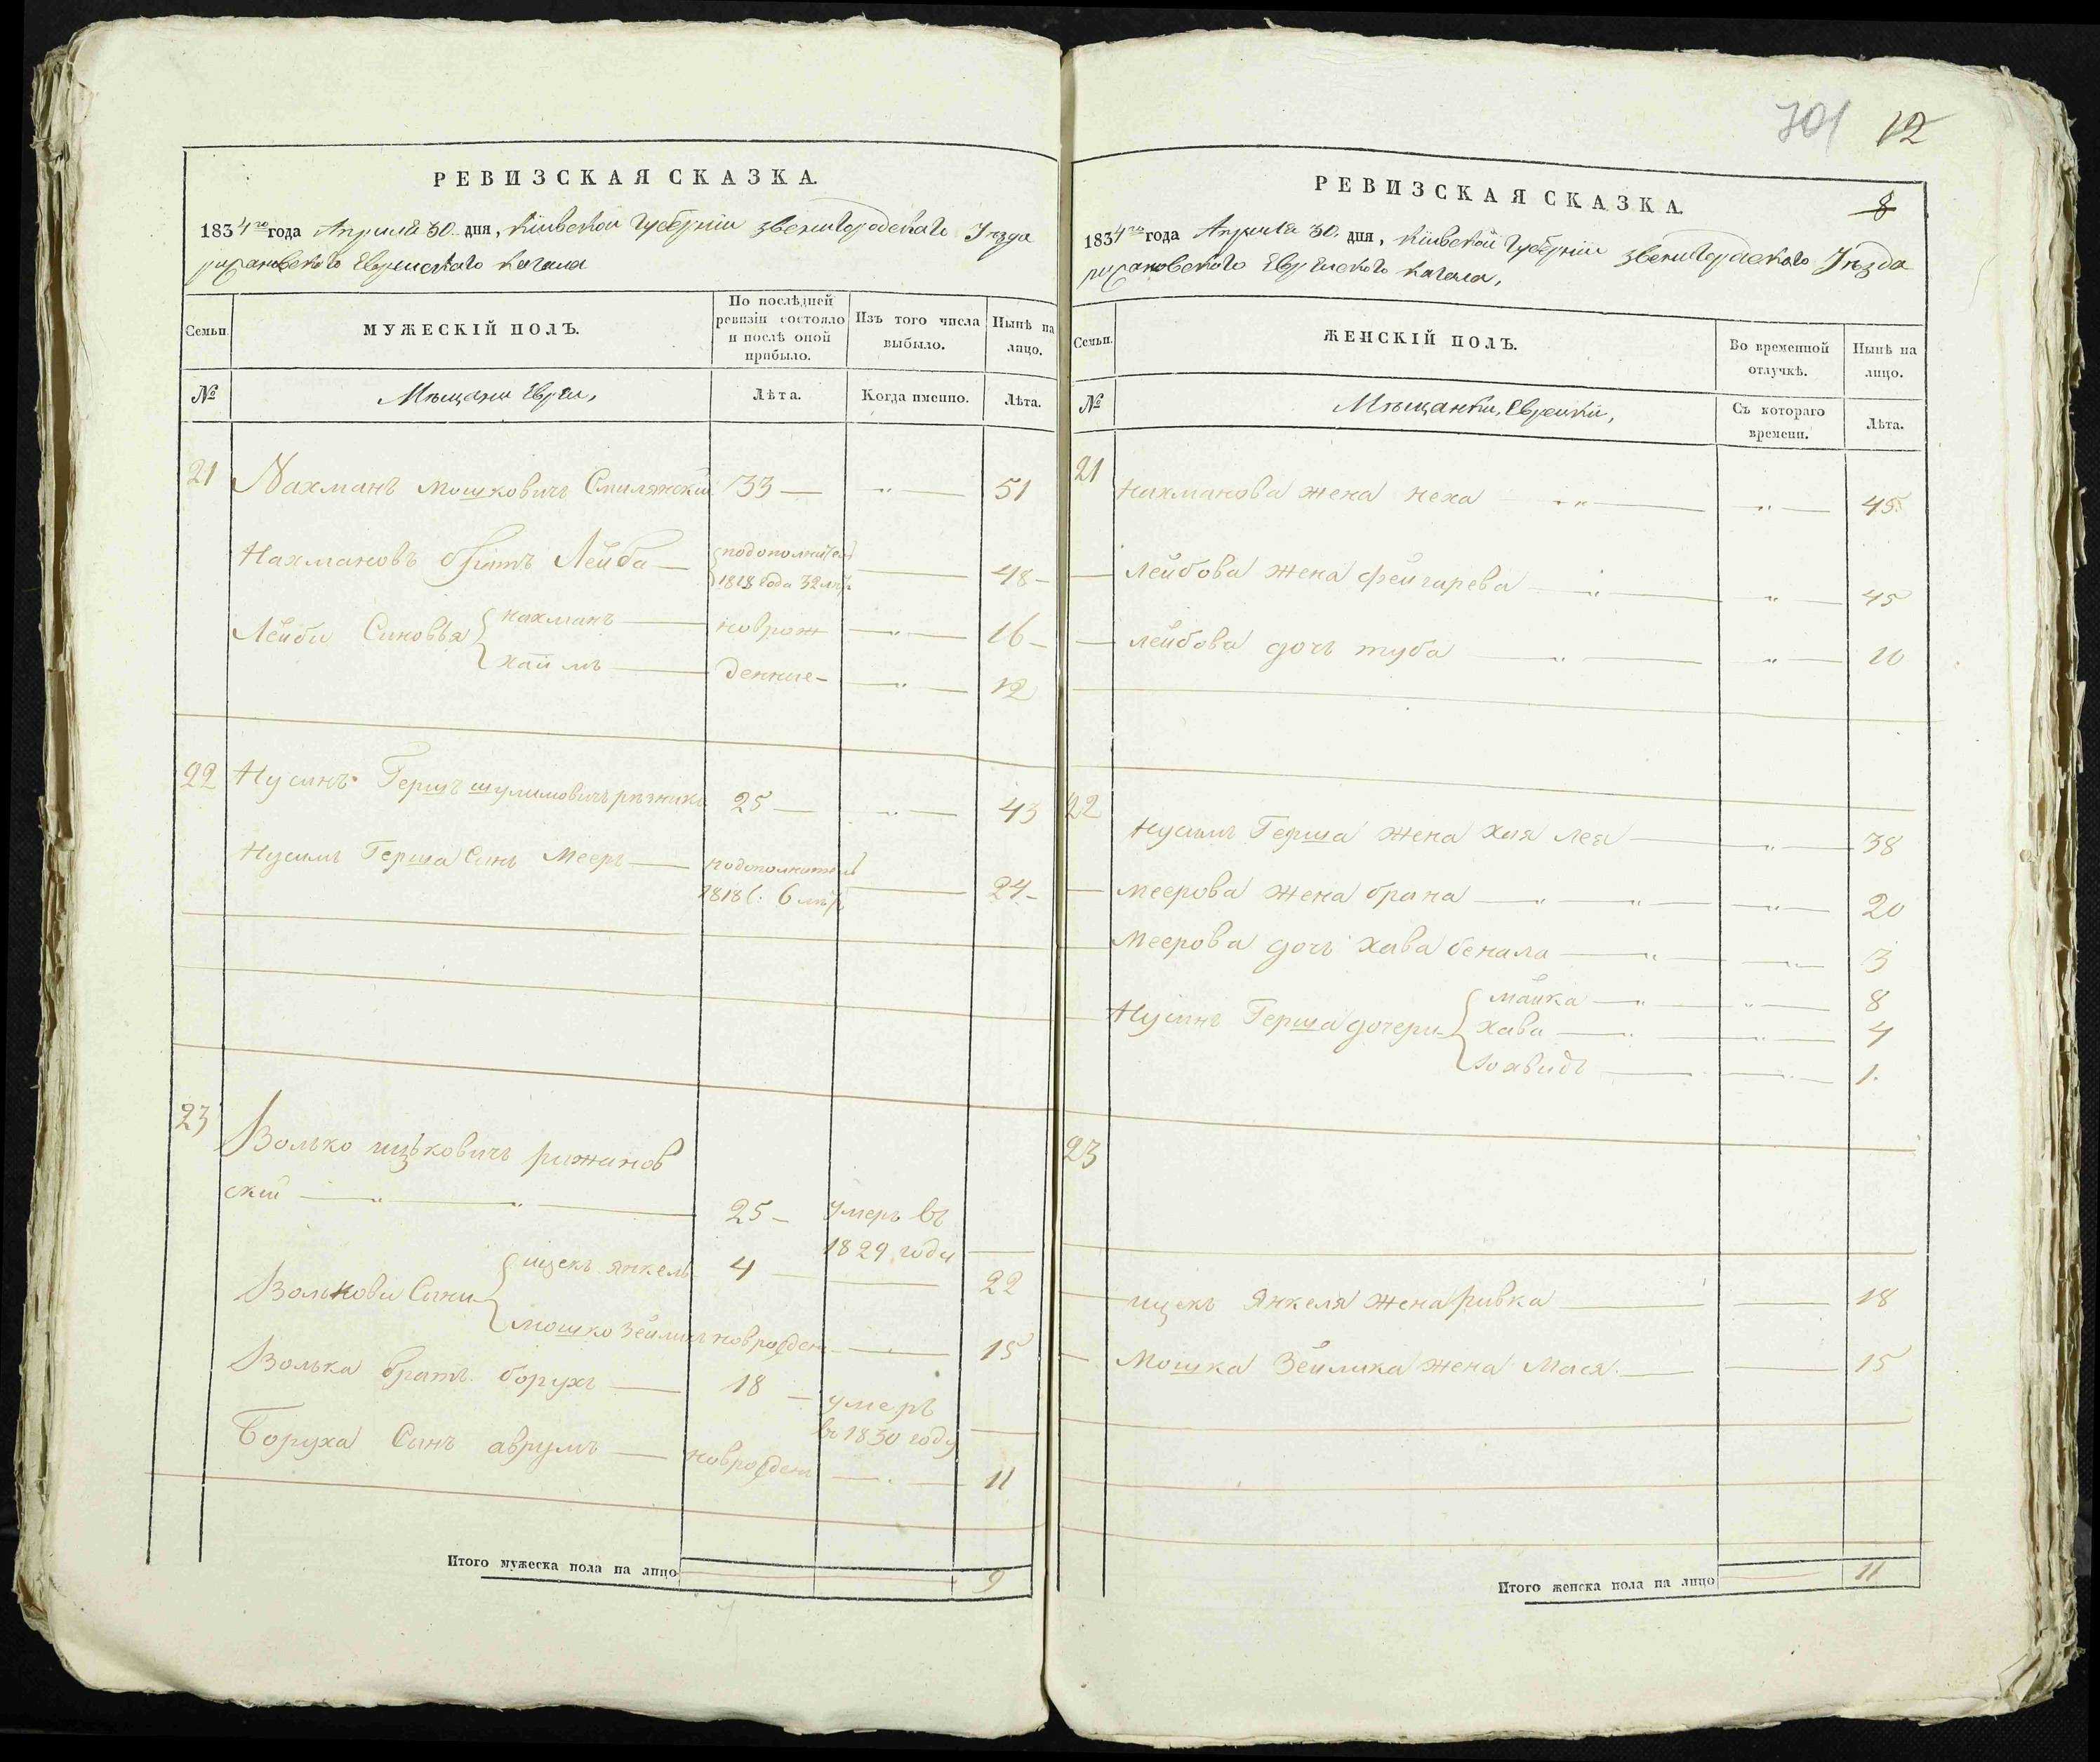 701 12
РЕВИЗСКАЯ СКАЗКА.
1834го года Апреля 30. дня, Кіивской Губерніи Звенигородскаго Уезда
рижановского Еврейского Кагала
Семьи.
МУЖЕСКІЙ ПОЛЪ.
По послѣдней ревизіи состояло и послѣ оной прибыло.
Изъ того числа выбыло.
Нынѣ на лицо.
№
Мѣщани Евреи,
Лѣта.
Когда именно.
Лѣта.
21 Нахманъ Мошковичъ Смилянскій 33 — „ — 51
Нахмановъ братъ Лейба — подополнител 1818 года 32 лѣт — 48 —
Лейби Синовья { нахманъ — новрож — „ — 16 —
хаимъ — денние — — „ — 12
22 Нусинъ Гершъ шулимовичъ рѣзникъ 25 — „ — 43
Нусимъ Герша Синъ Мееръ — подополнител 1818 г: 6 лѣт — 24 —
23 Волько ицьковичъ рижанов
ский — „ — „ — 25 — умеръ въ
1829 году —
Волькови Сини { ицекъ янкель 4 — — 22
мошко Зейликъ новрожден — — 15
Волька братъ борухъ — 18 — умеръ
въ 1830 году —
Боруха Синъ аврумъ — новрожден — . — 11
Итого мужеска пола на лицо 9
РЕВИЗСКАЯ СКАЗКА.
8
1834го года Апреля 30. дня, Кіивской Губерніи Звенигородскаго Уезда
рижановского Еврейского Кагала,
Семьи.
ЖЕНСКІЙ ПОЛЪ.
Во временной отлучкѣ.
Нынѣ на лицо.
№
Мѣщанки, Еврейки,
Съ котораго времени.
Лѣта.
21 Нахманова жена неха — „ — „ — 45
— Лейбова жена фейгарева — „ — „ — 45
— Лейбова дочъ туба — „ — „ — 10
22 Нусимъ Герша жена хая лея — „ — 38
— Меерова жена брана — „ — „ — „ — 20
Меерова дочъ хава бенала — „ — „ — 3
Нусинъ Герша дочери { майка — „ — „ — 8
хава — „ — „ — 4
— „ — 1.
23
— ицекъ Янкеля жена ривка — — 18
— Мошка Зейлика жена Мася. — — 15
Итого женска пола на лицо 11